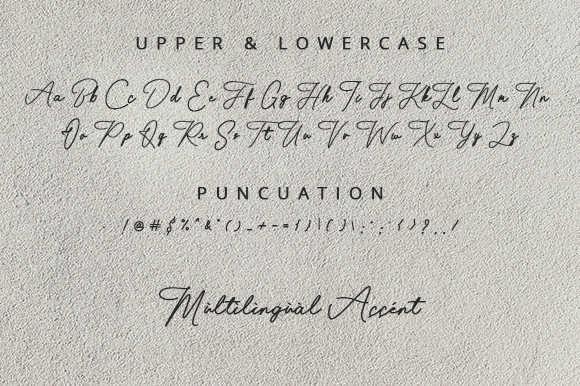 UPPER & LOWERCASE
Aa Bb Cc Dd Ee Ff Gg Hh Ii Jj Kk Ll Mm Nn
Oo Pp Qq Rr Ss Tt Uu Vv Ww Xx Yy Zz
PUNCUATION
Mùltilingùàl Accént